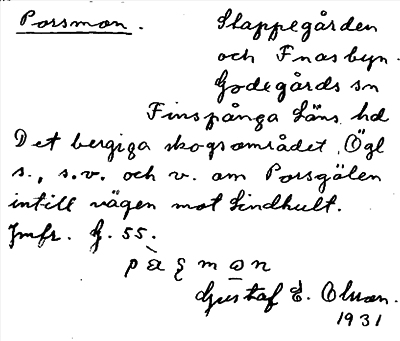 Porsmon. Slappegården
och Fnasbyn.
Godegårds sn
Finspånga läns hd
Det bergiga skogsområdet Ögl
s., s.v. och v. om Porsgölen
intill vägen mot Lindhult.
Jmfr. G. 55.
Gustaf E. Olsson.
1931